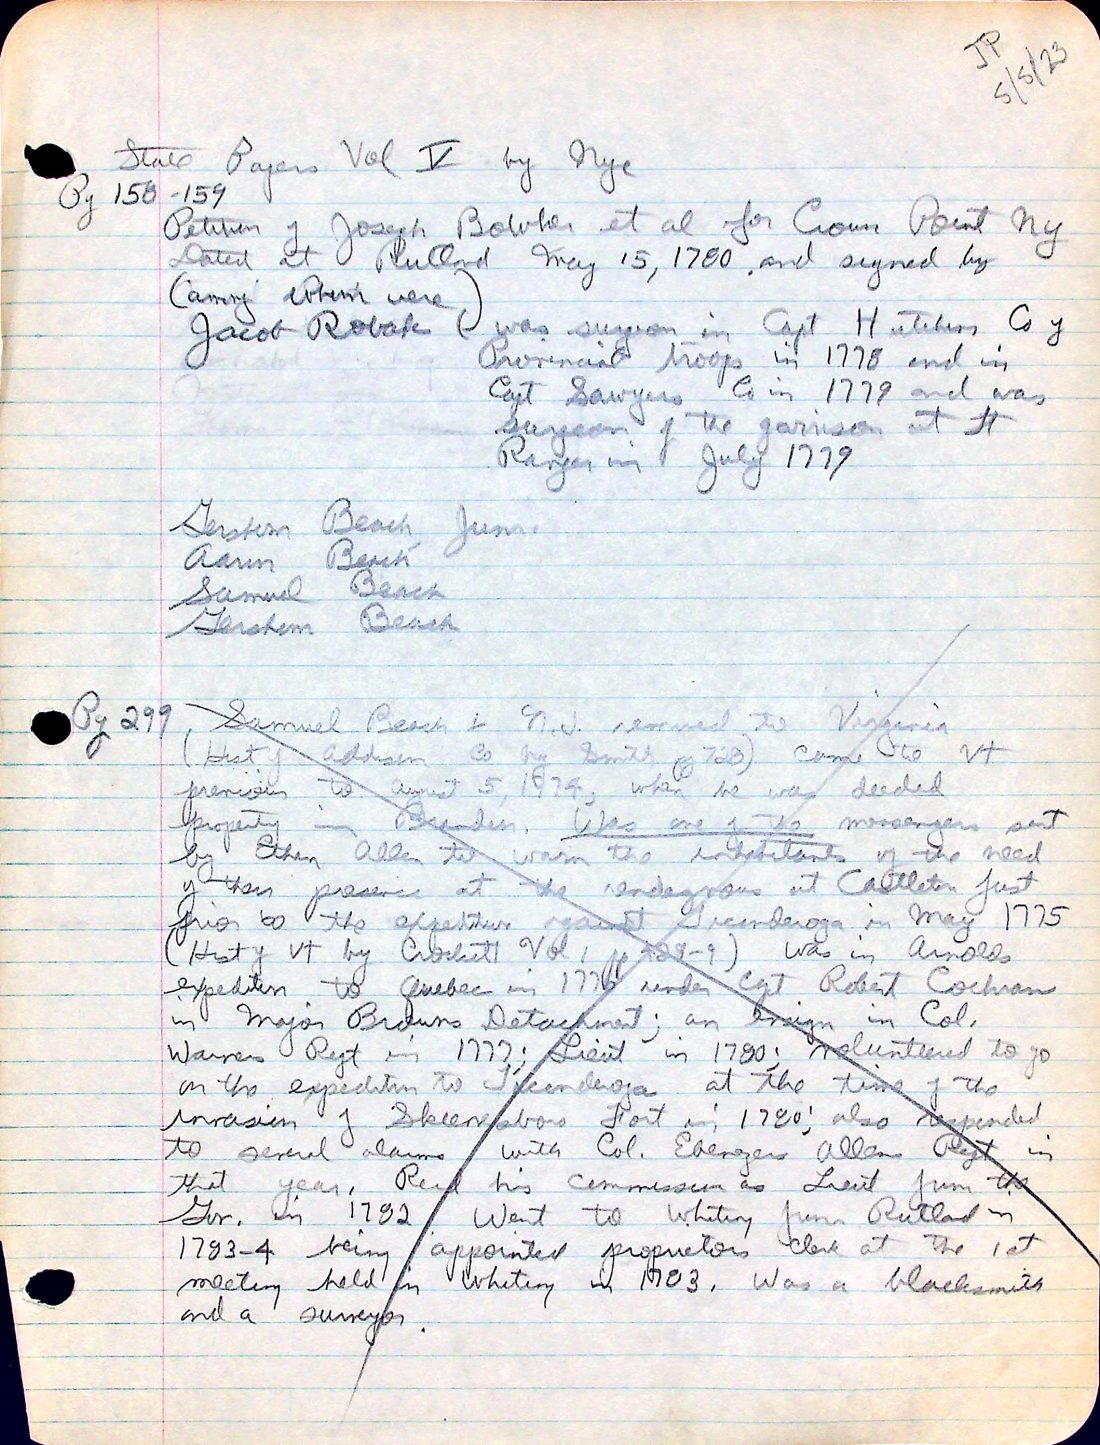 JP
5/5/23
State Papers Vol V by Nye
Pg 158-159
Petition of Joseph Bowker et al for Crown Point Ny
Dated at Rutland May 15, 1780, and signed by
(among whom were)
Jacob Roback (was surgeon in Capt Hutchins Co of
Provincial troops in 1778 and in
Capt Sawyers Co in 1779 and was
surgeon of the garrison at Ft
Ranger in July 1779
Gershom Beach Junr.
Aaron Beach
Samuel Beach
Gershom Beach
Pg 299, Samuel Beach b N.J. removed to Virginia
(Hist of Addison Co by Smith p 728) came to Vt
previous to August 5, 1774, when he was deeded
property in Brandon. Was one of the messengers sent
by Ethan Allen to warn the inhabitants of the need
of their presence at the rendezvous at Castleton just
prior to the expedition against Ticonderoga in May 1775
(Hist of Vt by Crockett Vol 1 p 428-9) was in Arnolds
expedition to Quebec in 1776 under Capt Robert Cochran
in Major Browns Detachment; an Ensign in Col.
Warners Regt in 1777; Lieut in 1780; volunteered to go
on the expedition to Ticonderoga at the time of the
invasion of Skeenesboro Fort in 1780; also responded
to several alarms with Col. Ebenezers Allens Regt in
that year. Recd his commission as Lieut from the
Gov. in 1782 Went to Whiting from Rutland in
1783-4 being appointed proprietors clerk at the 1st
meeting held in Whiting in 1783. Was a blacksmith
and a surveyor.